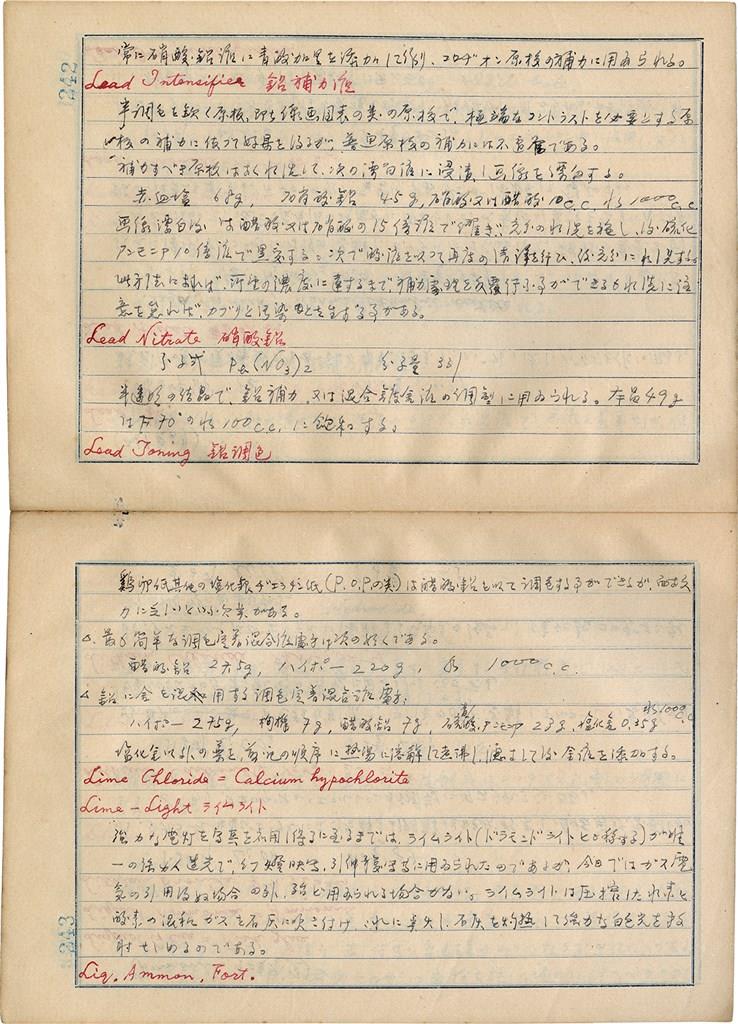 242
常に硝酸鉛液に青酸加里を添加して作り、コロヂオン原板の補力に用ゐられる。
Lead Intensifier 鉛補力液
半調色を欠く原板、即ち線画図表の類の原板で、極端なコントラストを必要とする原
板の補力に依つて好果を得るが、普通原板の補力には不適当である。
補力すべき原板はよく水洗して、次の漂白液に浸漬し画像を漂白する。
赤血塩 68g, 硝酸鉛 45g, 硝酸又は醋酸 10c.c. 水 1000c.c.
画像漂白後は醋酸又は硝酸の15倍液で濯ぎ、充分の水洗を施し、後硫化
アンモニア10倍液で黒変する。次で酸液を以つて再度の清浄を行ひ、後充分に水洗する。
此方法によれば、所望の濃度に達するまで補力処理を反覆行ふ事ができるも水洗に注
意を怠れば、カブリと汚染とを生ずる事がある。
Lead Nitrate 硝酸鉛
分子式 Pb(NO3)2 分子量 331
半透明の結晶で、鉛補力、又は混合鍍金液の調製に用ゐられる。本品49g
はF70°の水100c.c.に飽和する。
Lead Toning 鉛調色
243
鶏卵紙其他の塩化銀ゲラチン紙(P.O.P.の類)は醋酸鉛を以て調色する事ができるが、耐久
力に乏しいといふ欠点がある。
△ 最も簡単な調色定着混合液処方は次の如くである。
醋酸鉛 2.75g, ハイポー 220g, 水 1000c.c.
△ 鉛に金を混用する調色定着混合液処方
ハイポー 275g, 枸櫞 7g, 醋酸鉛 7g, アンモニア 23g, 塩化金 0.35g 水1000c.c.
塩化金以外の薬を、前記の順序に熱湯に溶解して煮沸し、濾して後金液を添加する。
Lime Chloride = Calcium hypochlorite
Lime-Light ライムライト
強力な電灯を写真に利用し得るに至るまでは、ライムライト(ドラモンドライトとも称する)が唯
一の強力人造光で、幻燈映写、引伸撮写等に用ゐられたのであるが、今日ではガス電
気の引用及ぬ場合の外、殆ど用ゐられる場合がない。ライムライトは圧搾した水素と
酸素の混和ガスを石灰に吹き付け、これに点火し、石灰を灼熱して強力な白色光を放
射せしめるのである。
Liq. Ammon. Fort.